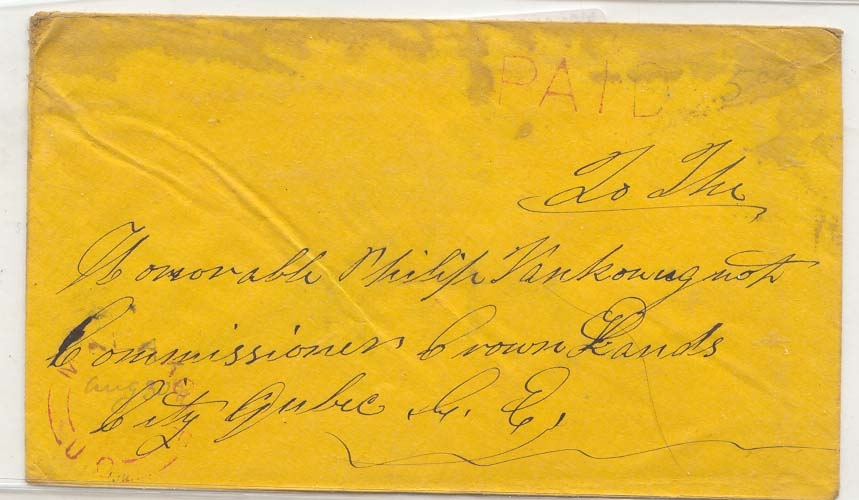 PAID 5
To The
Honorable Philip Vankoughnot
Commissioner Crown Lands
City Qubec C. E.